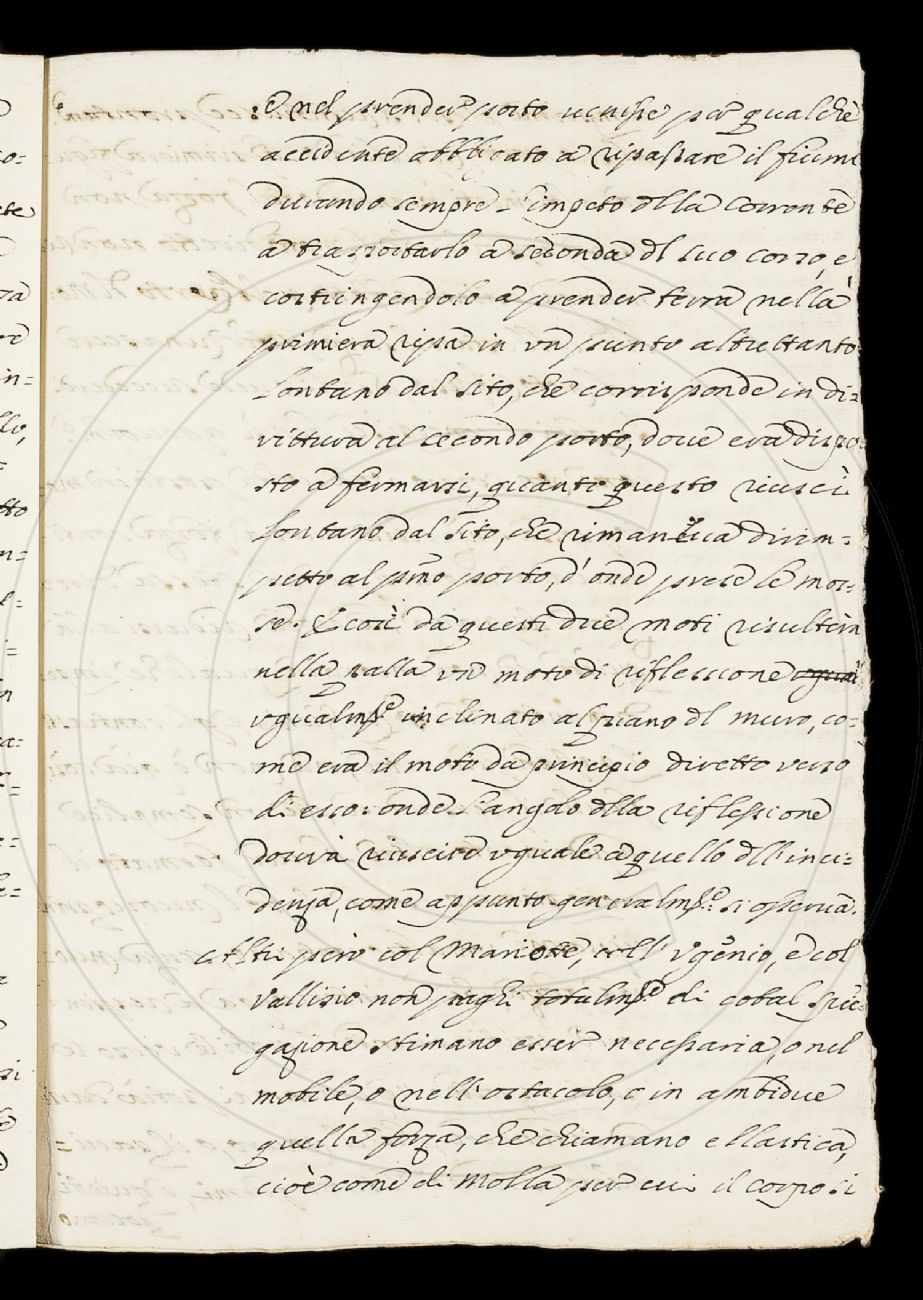 e nel prender porto venisse per qualche
accidente obbligato a ripassare il fiume
durando sempre l'impeto dlla corrente
a trasportarlo a seconda dl suo corso, e
costringendolo a prender terra nella
primiera ripa in un punto altrettanto
lontano dal sito, che corrisponde in di=
rittura al secondo porto, doue era dispo=
sto a fermarsi, quanto questo riuscì
lontano dal sito, che rimaneua dirim=
petto al pmo porto, d'onde prese le mos=
se. E così da questi due moti risulterà
nella palla un moto di riflessione egual
ugualmte inclinato al piano dl muro, co=
me era il moto da principio diretto verso
di esso: onde l'angolo dlla riflessione
dourà riuscire uguale a quello dll'inci=
denza, come appunto generalmte si osserua.
Altri però col Mariotte, coll'Ugenio, e col
Vallisio non paghi totalmte di cotal spie=
gazione stimano esser necessaria, o nel
mobile, o nell'ostacolo, o in ambidue
quella forza, che chiamano ellastica,
cioè come di Molla per cui il corpo si